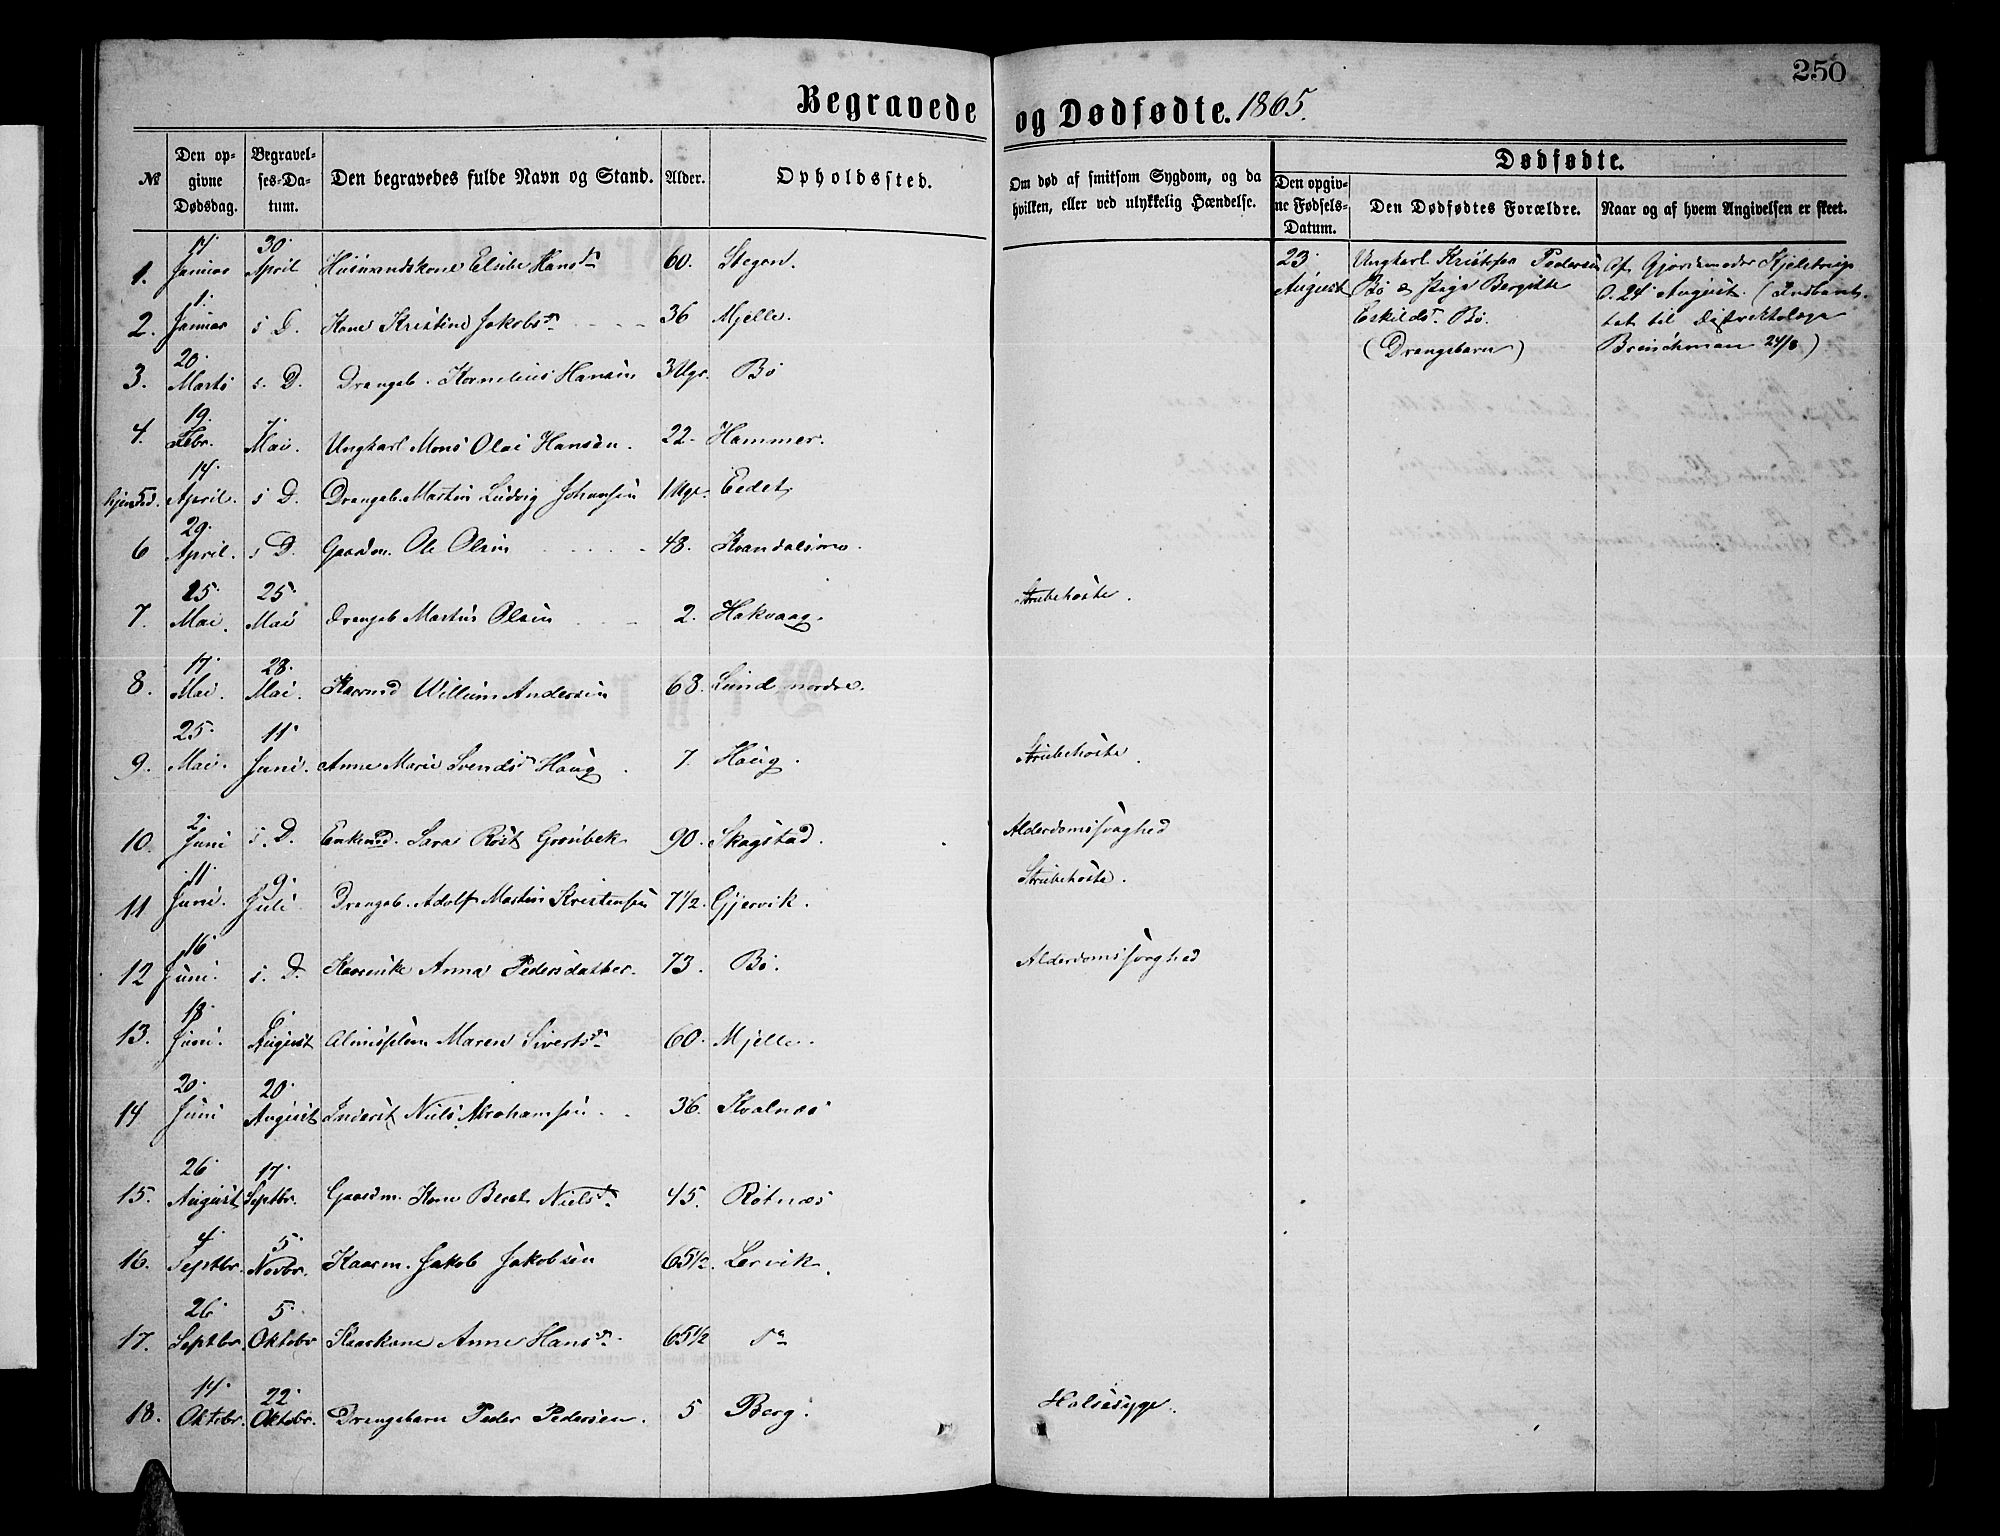 250
Begravede og Dødfødte. 1865.
№ Den opgivne Dødsdag. Begravelses-Datum. Den begravedes fulde Navn og Stand. Alder. Opholdssted. Om død af smitsom Sygdom, og da hvilken, eller ved ulykkelig Hændelse. Dødfødte. Den opgivne Fødsels-Datum. Den Dødfødtes Forældre. Naar og af hvem Angivelsen er skeet.
1. 17 Januar 30 April Husmandskone Hansdr 60. Stegen.
2. 1. Januar s. D. Kone Kristine Jakobsdr 36 Mjelle.
3. 20 Marts s. D. Drengeb. Kornelius Hansen 3 Ugr. Bö
4. 19. Febr. 7. Mai. Ungkarl Mons Olai Hansen. 22. Hammer.
hjemmed. 5. 14. April. s D. Drengeb. Martin Ludvig Johansen 1 Uge. Eedet
6 29. April. s D. Gaardm. Ole Olsen 48. Kvandalsmo.
7. 25 Mai. 25 Mai Drengeb Martin Olsen 2. Hakvaag. Strubehoste.
8. 17 Mai. 28. Mai. Kaarmd Willum Andersen 68. Lund nordre.
9. 25. Mai. 11 Juni. Anne Marie Svendsdr Haug 7. Haug. Strubehoste.
10. 2. Juni s. D. Enkemd. Sara Röst Grönbek 90. Skogstad. Alderdomssvaghed
11 11. Juni. 9. Juli Drengeb. Adolf Martin Kristensen 7½. Gjervik. Strubehoste.
12 16. Juni. s. D. Kaarenke Anna Pedersdatter. 73. Bö. Alderdomssvaghed
13. 18. Juni. 6 August Almisslem Maren Sivertsdr 60. Mjelle.
14 20. Juni 20 August Inderst Niels Abrahamsen 36. Kvalnes
15. 26 August 17. Septbr. Gaardm. Kone Beret Nielsdr 45. Rötnes
16. 4 Septbr. 5. Novbr. Kaarm. Jakob Jakobsen 65½. Lervik.
17. 26. Septbr 5. Oktobr Kaarkone Anne Hansdr. 65½ Do
18. 14. Oktobr. 22. Oktobr. Drengebarn Peder Pedersen. 5 Berg. Halssyge.
23. August Ungkarl Kristofer Pedersen
Bö & Pige Bergitte
Eskildsdr. Bö.
(Drengebarn)
Af Gjordemoder Kjelstrup
D. 24 August. (Indberet-
tet til Distriktslæge
24/8)